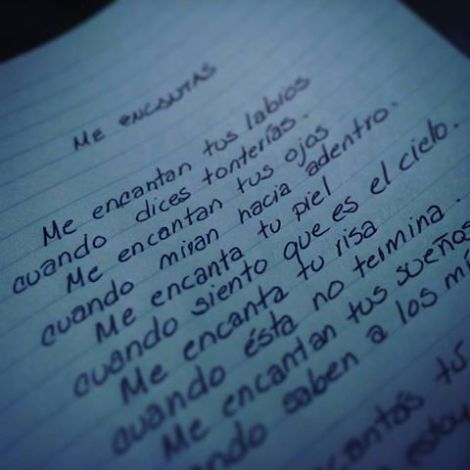 ME ENCANTAS
Me encantan tus labios
cuando dices tonterías.
Me encantan tus ojos
cuando miran hacia adentro.
Me encanta tu piel
cuando siento que es el cielo.
Me encanta tu risa
cuando ésta no termina.
Me encantan tus sueños
cuando saben a los
encantas tu